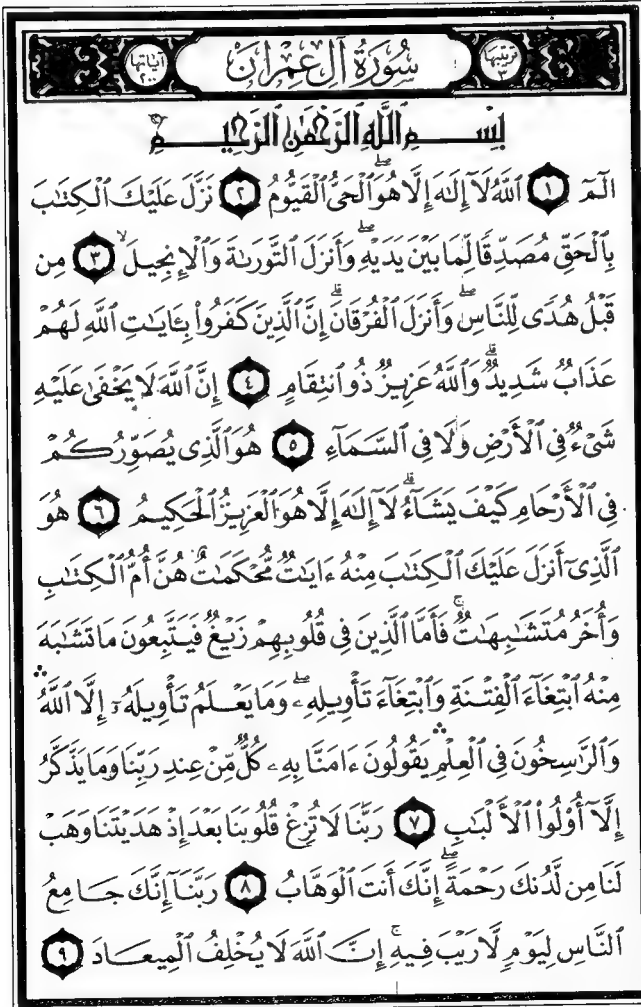 ترتيبها ٣ سُورَةُ آلِ عِمْرَانَ آيَاتُهَا ٢٠٠
بِسْمِ ٱللَّهِ ٱلرَّحْمَٰنِ ٱلرَّحِيمِ
الٓمٓ ١ ٱللَّهُ لَآ إِلَٰهَ إِلَّا هُوَ ٱلْحَىُّ ٱلْقَيُّومُ ٢ نَزَّلَ عَلَيْكَ ٱلْكِتَٰبَ
بِٱلْحَقِّ مُصَدِّقًا لِّمَا بَيْنَ يَدَيْهِ ۖ وَأَنزَلَ ٱلتَّوْرَىٰةَ وَٱلْإِنجِيلَ ۙ ٣ مِن
قَبْلُ هُدًى لِّلنَّاسِ ۖ وَأَنزَلَ ٱلْفُرْقَانَ ۗ إِنَّ ٱلَّذِينَ كَفَرُوا۟ بِـَٔايَٰتِ ٱللَّهِ لَهُمْ
عَذَابٌ شَدِيدٌ ۗ وَٱللَّهُ عَزِيزٌ ذُو ٱنتِقَامٍ ٤ إِنَّ ٱللَّهَ لَا يَخْفَىٰ عَلَيْهِ
شَىْءٌ فِى ٱلْأَرْضِ وَلَا فِى ٱلسَّمَآءِ ٥ هُوَ ٱلَّذِى يُصَوِّرُكُمْ
فِى ٱلْأَرْحَامِ كَيْفَ يَشَآءُ ۚ لَآ إِلَٰهَ إِلَّا هُوَ ٱلْعَزِيزُ ٱلْحَكِيمُ ٦ هُوَ
ٱلَّذِىٓ أَنزَلَ عَلَيْكَ ٱلْكِتَٰبَ مِنْهُ ءَايَٰتٌ مُّحْكَمَٰتٌ هُنَّ أُمُّ ٱلْكِتَٰبِ
وَأُخَرُ مُتَشَٰبِهَٰتٌ ۖ فَأَمَّا ٱلَّذِينَ فِى قُلُوبِهِمْ زَيْغٌ فَيَتَّبِعُونَ مَا تَشَٰبَهَ
مِنْهُ ٱبْتِغَآءَ ٱلْفِتْنَةِ وَٱبْتِغَآءَ تَأْوِيلِهِۦ ۖ وَمَا يَعْلَمُ تَأْوِيلَهُۥٓ إِلَّا ٱللَّهُ ۛ
وَٱلرَّٰسِخُونَ فِى ٱلْعِلْمِ ۛ يَقُولُونَ ءَامَنَّا بِهِۦ كُلٌّ مِّنْ عِندِ رَبِّنَا وَمَا يَذَّكَّرُ
إِلَّآ أُو۟لُوا۟ ٱلْأَلْبَٰبِ ٧ رَبَّنَا لَا تُزِغْ قُلُوبَنَا بَعْدَ إِذْ هَدَيْتَنَا وَهَبْ
لَنَا مِن لَّدُنكَ رَحْمَةً ۖ إِنَّكَ أَنتَ ٱلْوَهَّابُ ٨ رَبَّنَآ إِنَّكَ جَامِعُ
ٱلنَّاسِ لِيَوْمٍ لَّا رَيْبَ فِيهِ ۚ إِنَّ ٱللَّهَ لَا يُخْلِفُ ٱلْمِيعَادَ ٩